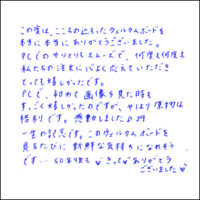 この度は、こころのこもったウェルカムボードを
本当に本当にありがとうございました。
PCでのやりとりもスムーズで、何度も何度も
私たちの注文に心よく応えていただき
とっても嬉しかったです。
PCで、初めて画像を見た時も
すっごく嬉しかったのですが、やはり実物は
格別です。感動しました♪
一生の記念です。このウェルカムボードを
見るたびに新鮮な気持ちになれそう
です…50年後も♥きっと♥ありがとう
ございました♥